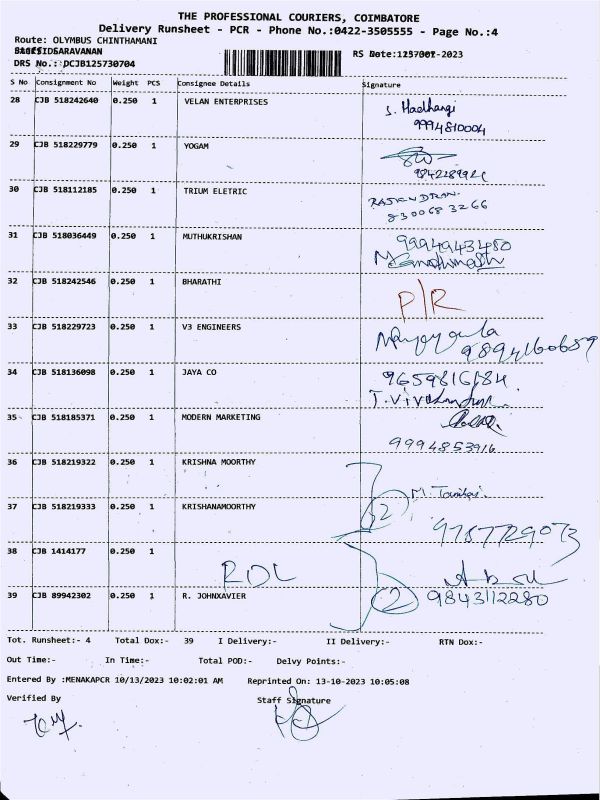 THE PROFESSIONAL COURIERS, COIMBATORE
Delivery Runsheet - PCR - Phone No.:0422-3505555 - Page No.:4
Route: OLYMBUS CHINTHAMANI
SARAVANAN
RS Date: -2023
DRS No.: PCJB125730704
S No Consignment No Weight PCS Consignee Details Signature
28 CJB 518242640 0.250 1 VELAN ENTERPRISES
9994810004
29 CJB 518229779 0.250 1 YOGAM
30 CJB 518112185 0.250 1 TRIUM ELETRIC RAJENDRAN.
8300683266
31 CJB 518036449 0.250 1 MUTHUKRISHAN
32 CJB 518242546 0.250 1 BHARATHI P/R
33 CJB 518229723 0.250 1 V3 ENGINEERS
34 CJB 518136098 0.250 1 JAYA CO 9659816184
35 CJB 518185371 0.250 1 MODERN MARKETING
9994853916
36 CJB 518219322 0.250 1 KRISHNA MOORTHY
37 CJB 518219333 0.250 1 KRISHANAMOORTHY 2
9787729073
38 CJB 1414177 0.250 1
RDL
39 CJB 89942302 0.250 1 R. JOHNXAVIER 2 9843112280
Tot. Runsheet:- 4 Total Dox:- 39 I Delivery:- II Delivery:- RTN Dox:-
Out Time:- In Time:- Total POD:- Delvy Points:-
Entered By :MENAKAPCR 10/13/2023 10:02:01 AM Reprinted On: 13-10-2023 10:05:08
Verified By Staff Signature